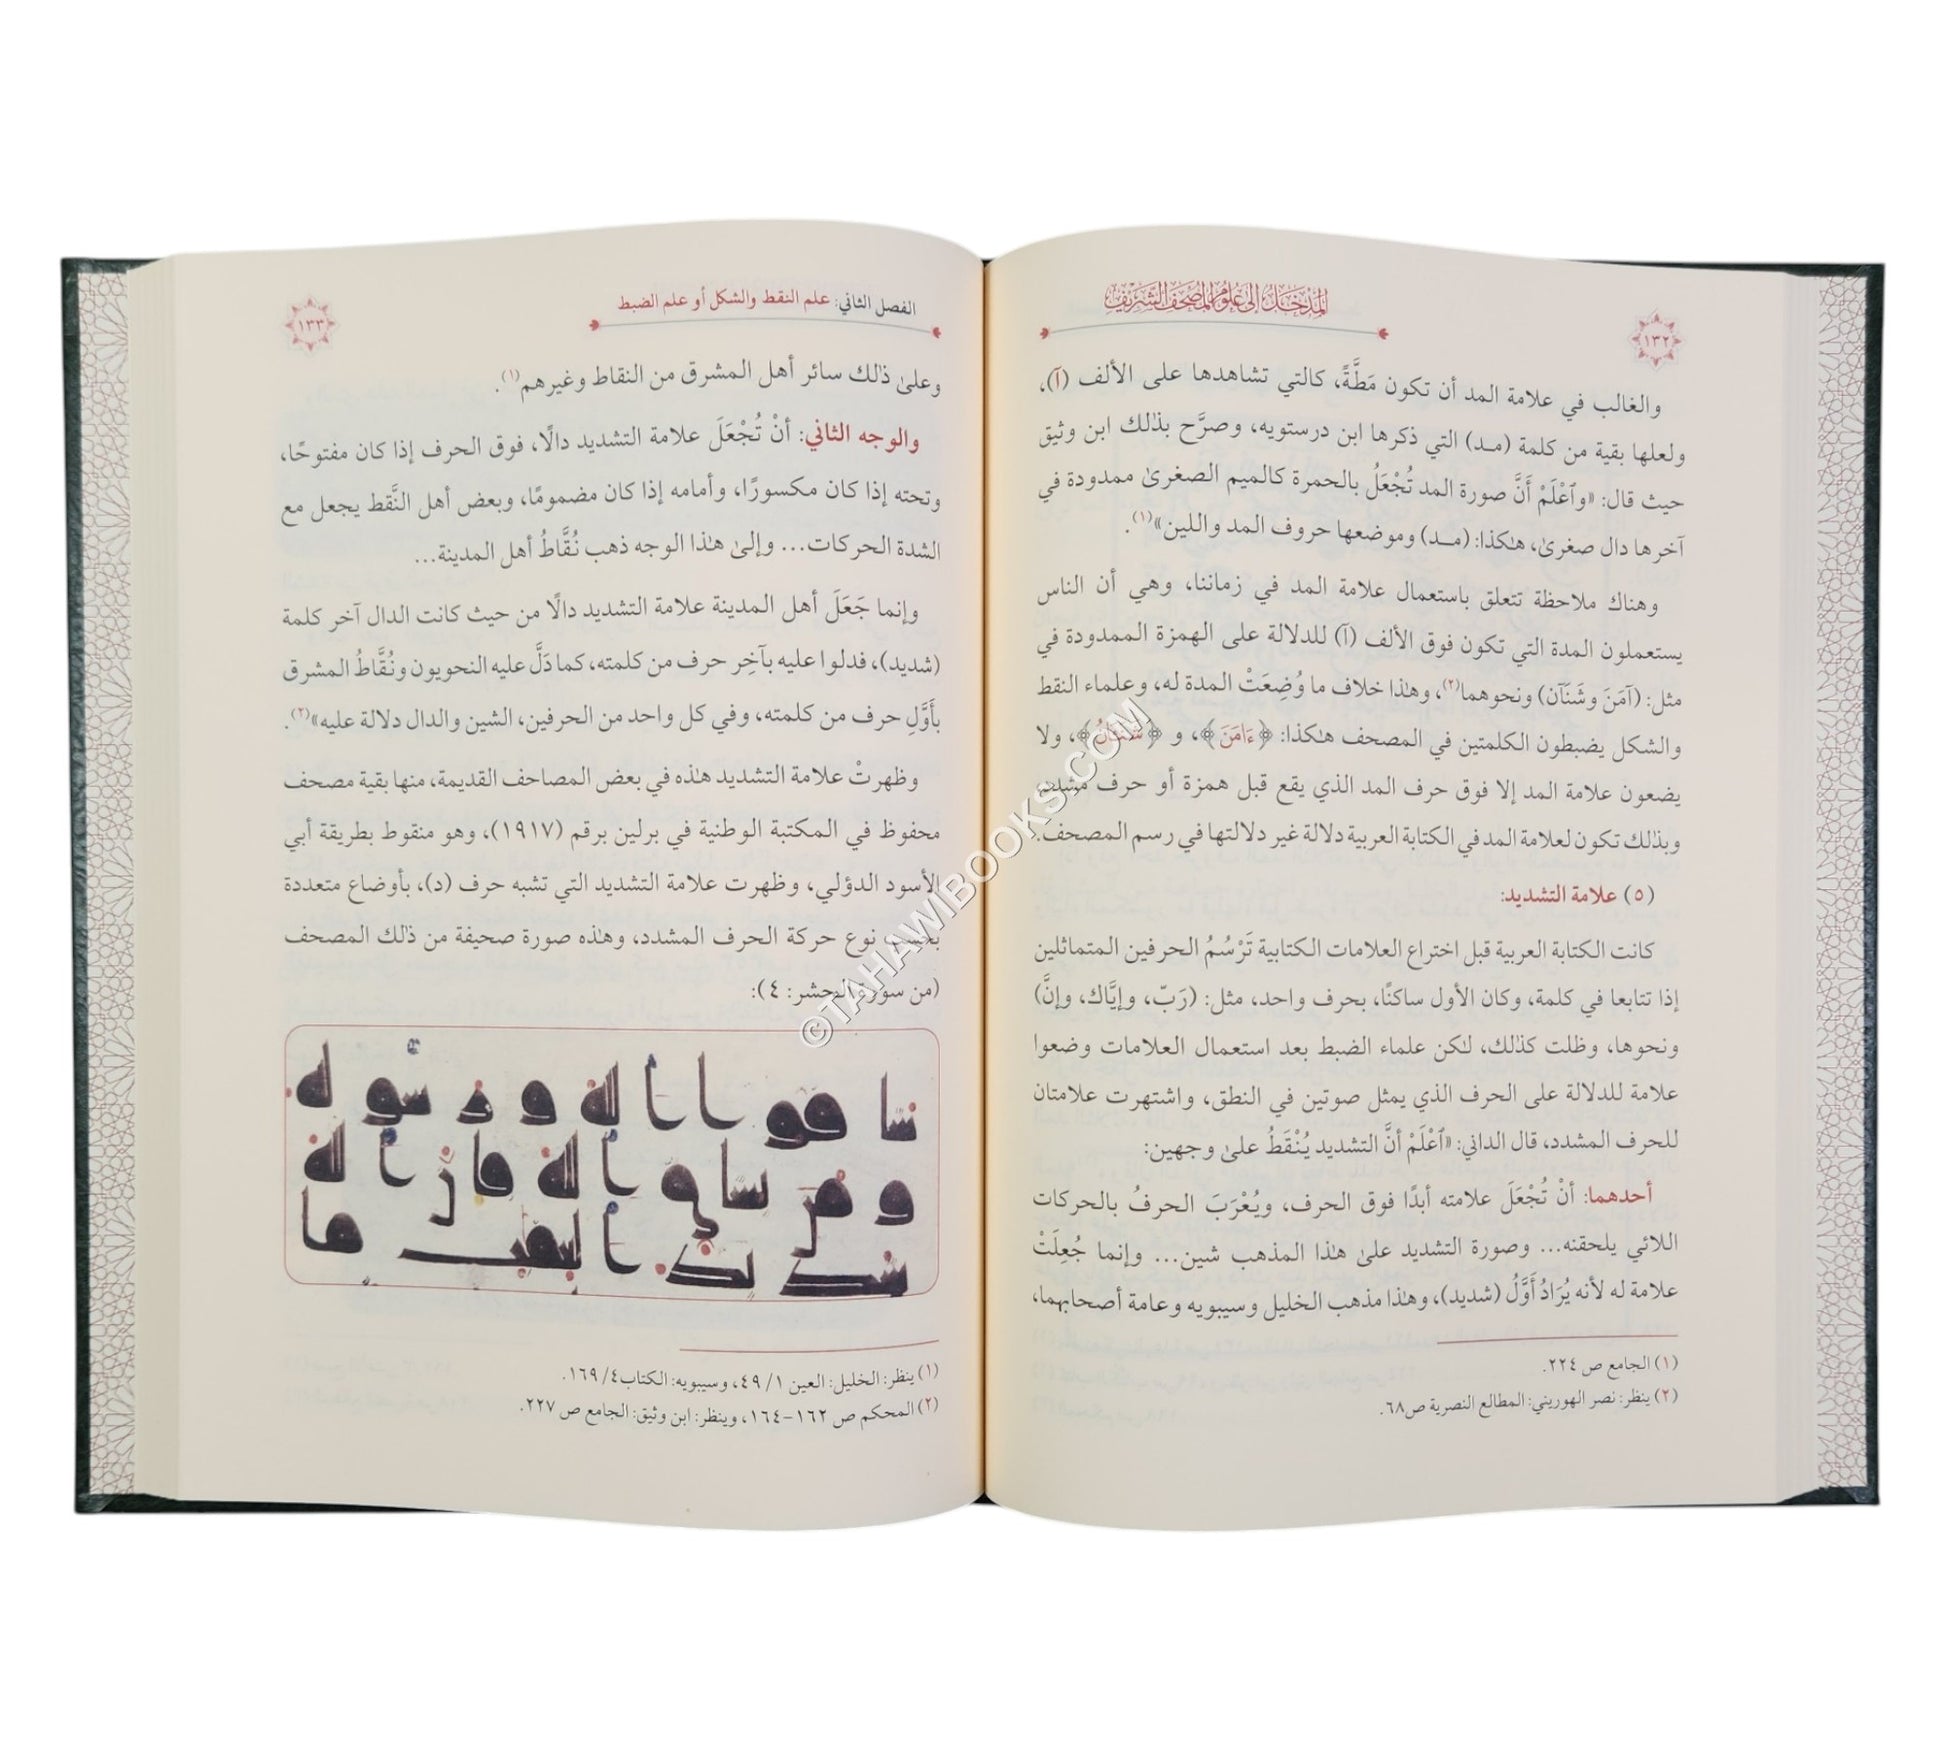 المدخل إلى علوم المصحف الشريف
١٣٢
والغالب في علامة المد أن تكون مَطَّةً، كالتي تشاهدها على الألف (آ)،
ولعلها بقية من كلمة (مـد) التي ذكرها ابن درستويه، وصرَّح بذلك ابن وثيق
حيث قال: «وٱعْلَمْ أَنَّ صورة المد تُجْعَلُ بالحمرة كالميم الصغرىٰ ممدودة في
آخرها دال صغرىٰ، هٰكذا: (مـد) وموضعها حروف المد واللين»(١).
وهناك ملاحظة تتعلق باستعمال علامة المد في زماننا، وهي أن الناس
يستعملون المدة التي تكون فوق الألف (آ) للدلالة على الهمزة الممدودة في
مثل: (آمَنَ وشَنَآن) ونحوهما(٢)، وهٰذا خلاف ما وُضِعَتْ المدة له، وعلماء النقط
والشكل يضبطون الكلمتين في المصحف هٰكذا: ﴿ءَامَنَ﴾، و ﴿شَنَـَٔانُ﴾، ولا
يضعون علامة المد إلا فوق حرف المد الذي يقع قبل همزة أو حرف مشدد،
وبذٰلك تكون لعلامة المد في الكتابة العربية دلالة غير دلالتها في رسم المصحف.
(٥) علامة التشديد:
كانت الكتابة العربية قبل اختراع العلامات الكتابية تَرْسُمُ الحرفين المتماثلين
إذا تتابعا في كلمة، وكان الأول ساكنًا، بحرف واحد، مثل: (رَبّ، وإيَّاك، وإنَّ)
ونحوها، وظلت كذٰلك، لٰكن علماء الضبط بعد استعمال العلامات وضعوا
علامة للدلالة على الحرف الذي يمثل صوتين في النطق، واشتهرت علامتان
للحرف المشدد، قال الداني: «ٱعْلَمْ أنَّ التشديد يُنْقَطُ علىٰ وجهين:
أحدهما: أنْ تُجْعَلَ علامته أبدًا فوق الحرف، ويُعْرَبَ الحرفُ بالحركات
اللائي يلحقنه... وصورة التشديد علىٰ هٰذا المذهب شين... وإنما جُعِلَتْ
علامة له لأنه يُرَادُ أَوَّلُ (شديد)، وهٰذا مذهب الخليل وسيبويه وعامة أصحابهما،
(١) الجامع ص ٢٢٤.
(٢) ينظر: نصر الهوريني: المطالع النصرية ص٦٨.
الفصل الثاني: علم النقط والشكل أو علم الضبط
١٣٣
وعلىٰ ذٰلك سائر أهل المشرق من النقاط وغيرهم(١).
والوجه الثاني: أنْ تُجْعَلَ علامة التشديد دالًا، فوق الحرف إذا كان مفتوحًا،
وتحته إذا كان مكسورًا، وأمامه إذا كان مضمومًا، وبعض أهل النَّقط يجعل مع
الشدة الحركات... وإلىٰ هٰذا الوجه ذهب نُقَّاطُ أهل المدينة...
وإنما جَعَلَ أهل المدينة علامة التشديد دالًا من حيث كانت الدال آخر كلمة
(شديد)، فدلوا عليه بآخِر حرف من كلمته، كما دَلَّ عليه النحويون ونُقَّاطُ المشرق
بأَوَّلِ حرف من كلمته، وفي كل واحد من الحرفين، الشين والدال دلالة عليه»(٢).
وظهرتْ علامة التشديد هٰذه في بعض المصاحف القديمة، منها بقية مصحف
محفوظ في المكتبة الوطنية في برلين برقم (١٩١٧)، وهو منقوط بطريقة أبي
الأسود الدؤلي، وظهرت علامة التشديد التي تشبه حرف (د)، بأوضاع متعددة
بحسب نوع حركة الحرف المشدد، وهٰذه صورة صحيفة من ذٰلك المصحف
(من سورة الحشر: ٤):
ساقوا الله ورسوله
ومن يساق الله فإن الله
شديد العقاب ما
(١) ينظر: الخليل: العين ١/ ٤٩، وسيبويه: الكتاب ٤/ ١٦٩.
(٢) المحكم ص ١٦٢-١٦٤، وينظر: ابن وثيق: الجامع ص ٢٢٧.
©TAHAWIBOOKS.COM